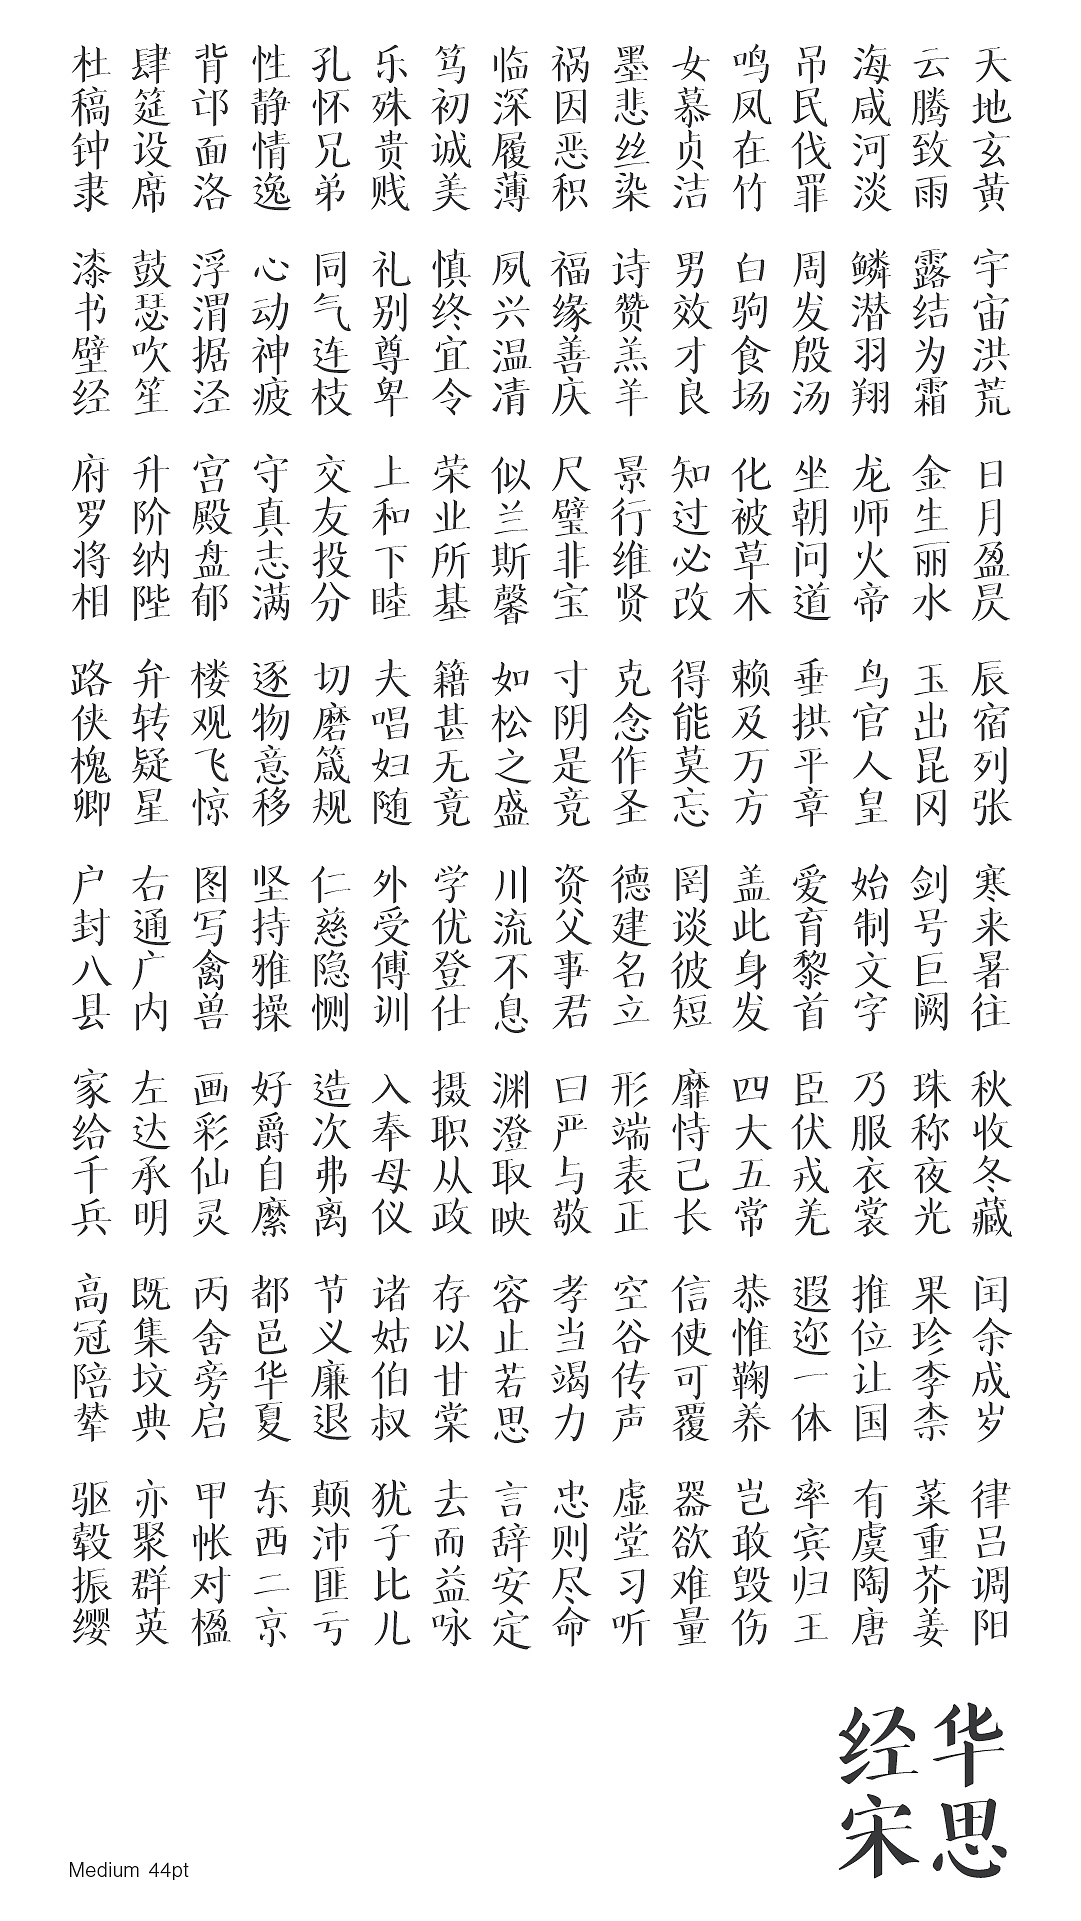 天地玄黄 宇宙洪荒 日月盈昃 辰宿列张 寒来暑往 秋收冬藏 闰余成岁 律吕调阳
云腾致雨 露结为霜 金生丽水 玉出昆冈 剑号巨阙 珠称夜光 果珍李柰 菜重芥姜
海咸河淡 鳞潜羽翔 龙师火帝 鸟官人皇 始制文字 乃服衣裳 推位让国 有虞陶唐
吊民伐罪 周发殷汤 坐朝问道 垂拱平章 爱育黎首 臣伏戎羌 遐迩一体 率宾归王
鸣凤在竹 白驹食场 化被草木 赖及万方 盖此身发 四大五常 恭惟鞠养 岂敢毁伤
女慕贞洁 男效才良 知过必改 得能莫忘 罔谈彼短 靡恃己长 信使可覆 器欲难量
墨悲丝染 诗赞羔羊 景行维贤 克念作圣 德建名立 形端表正 空谷传声 虚堂习听
祸因恶积 福缘善庆 尺璧非宝 寸阴是竞 资父事君 曰严与敬 孝当竭力 忠则尽命
临深履薄 夙兴温清 似兰斯馨 如松之盛 川流不息 渊澄取映 容止若思 言辞安定
笃初诚美 慎终宜令 荣业所基 籍甚无竟 学优登仕 摄职从政 存以甘棠 去而益咏
乐殊贵贱 礼别尊卑 上和下睦 夫唱妇随 外受傅训 入奉母仪 诸姑伯叔 犹子比儿
孔怀兄弟 同气连枝 交友投分 切磨箴规 仁慈隐恻 造次弗离 节义廉退 颠沛匪亏
性静情逸 心动神疲 守真志满 逐物意移 坚持雅操 好爵自縻 都邑华夏 东西二京
背邙面洛 浮渭据泾 宫殿盘郁 楼观飞惊 图写禽兽 画彩仙灵 丙舍旁启 甲帐对楹
肆筵设席 鼓瑟吹笙 升阶纳陛 弁转疑星 右通广内 左达承明 既集坟典 亦聚群英
杜稿钟隶 漆书壁经 府罗将相 路侠槐卿 户封八县 家给千兵 高冠陪辇 驱毂振缨
华思
经宋
Medium 44pt